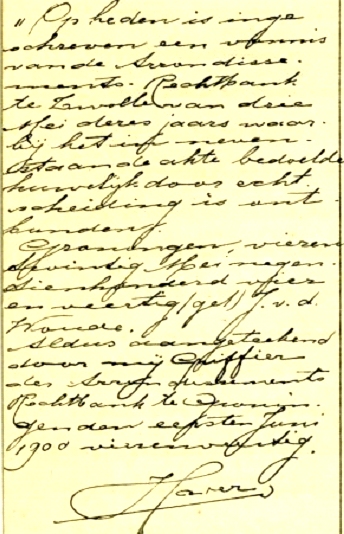 "Op heden is inge
schreven een vonnis
van de Arrondisse-
ments-Rechtbank
te Zwolle van drie
Mei dezes jaars waar-
bij het in neven-
staande akte bedoelde
huwelijk door echt-
scheiding is ont-
bonden.
Groningen, vieren
twintig Mei negen-
tienhonderd vier
en veertig (get) J. v. d.
Woude.
Aldus aangeteekend
door mij Griffier
der Arrondissements
Rechtbank te Gronin-
gen den eersten Juni
1900 vierenveertig.